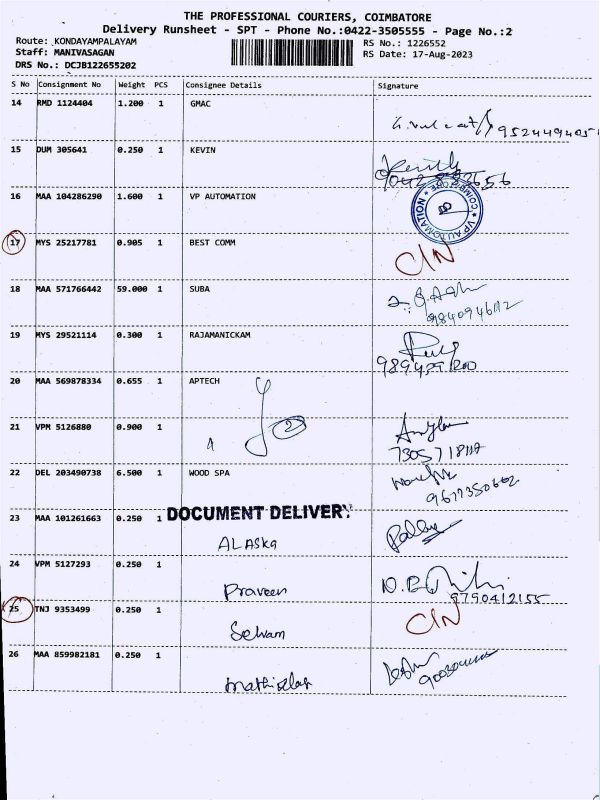 THE PROFESSIONAL COURIERS, COIMBATORE
Delivery Runsheet - SPT - Phone No.:0422-3505555 - Page No.:2
Route: KONDAYAMPALAYAM RS No.: 1226552
Staff: MANIVASAGAN RS Date: 17-Aug-2023
DRS No.: DCJB122655202
S No Consignment No Weight PCS Consignee Details Signature
14 RMD 1124404 1.200 1 GMAC
15 DUM 305641 0.250 1 KEVIN
16 MAA 104286290 1.600 1 VP AUTOMATION
VP AUTOMATION * COIMBATORE *
17 MYS 25217781 0.905 1 BEST COMM C/N
18 MAA 571766442 59.000 1 SUBA
19 MYS 29521114 0.300 1 RAJAMANICKAM
20 MAA 569878334 0.655 1 APTECH
2
21 VPM 5126880 0.900 1
22 DEL 203490738 6.500 1 WOOD SPA
23 MAA 101261663 0.250 1 DOCUMENT DELIVERY
ALASKA
24 VPM 5127293 0.250 1
Praveen 9790412155
25 TNJ 9353499 0.250 1 C/N
Selvam
26 MAA 859982181 0.250 1